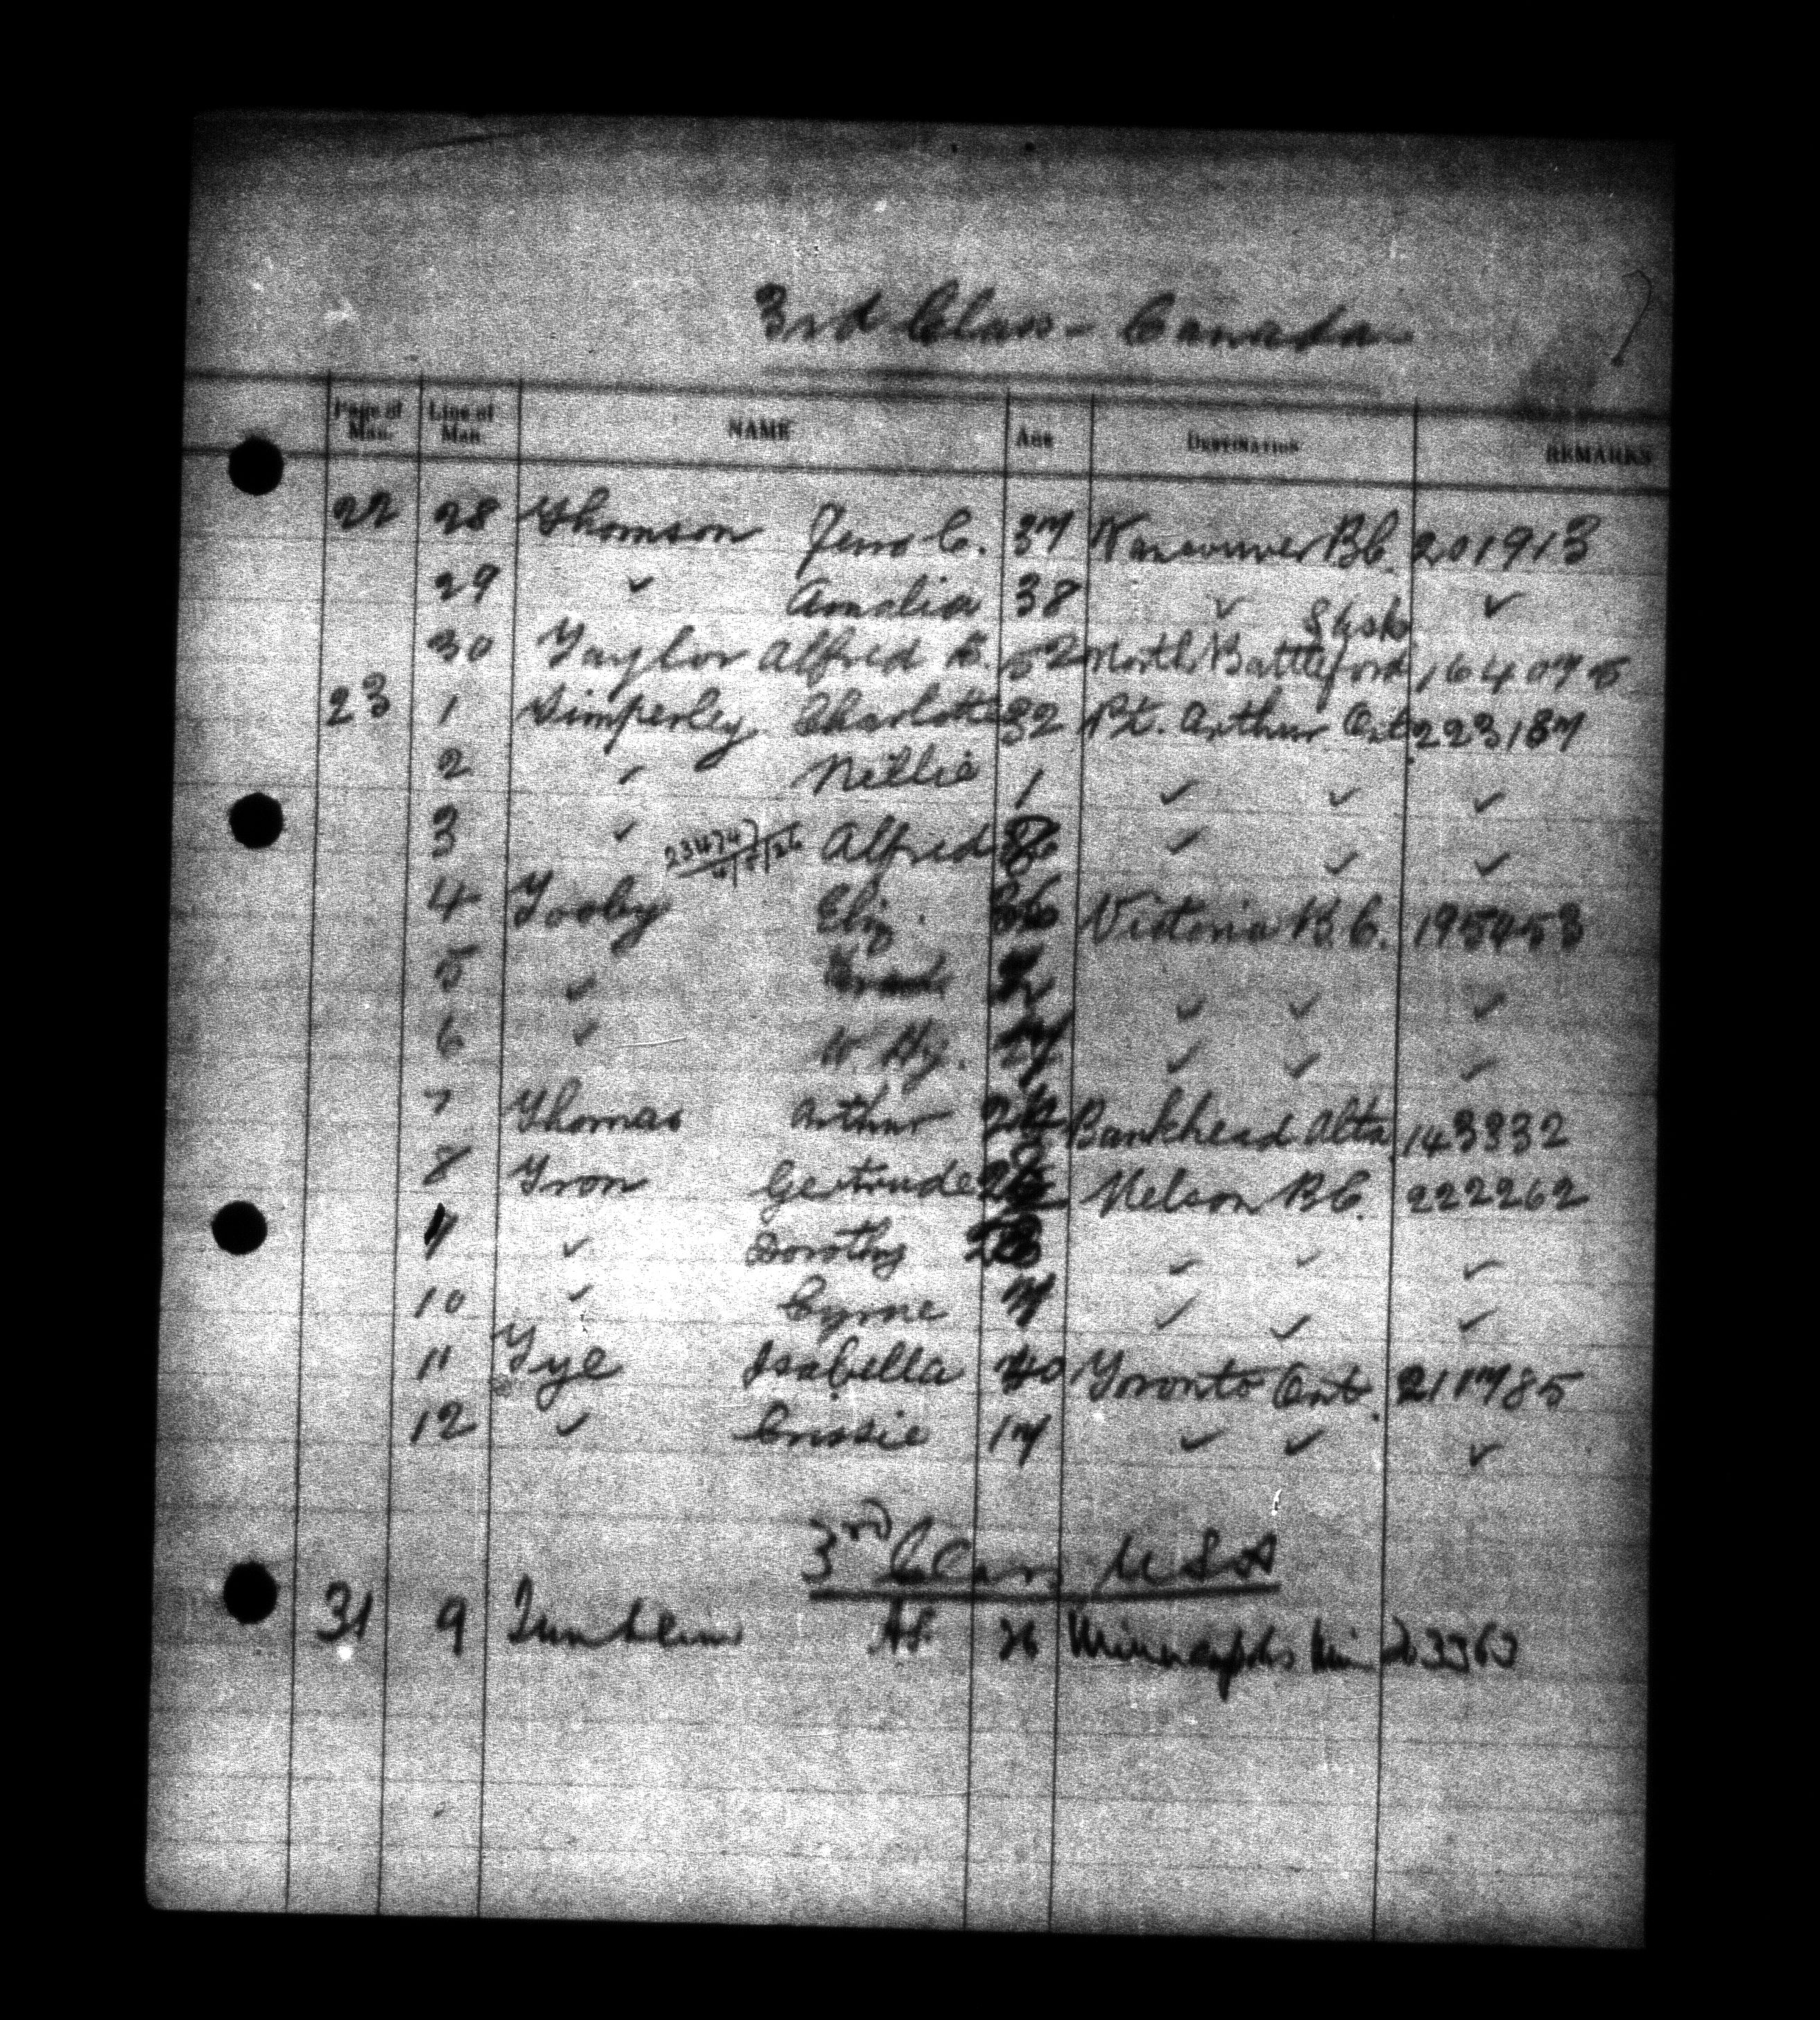 3rd Class - Canada
Page of Man. Line of Man. NAME Age Destination REMARKS
22 28 Thomson Jens C. 37 Vancouver B.C. 201913
29 ✓ Amalia 38 ✓ ✓
Sask
30 Taylor Alfred E. 52 North Battleford 164075
23 1 Timperley Charlotte 32 Pt. Arthur Ont. 223187
2 ✓ Nellie 1 ✓ ✓ ✓
3 ✓ Alfred ✓ ✓ ✓
4 Tooby Eliz. Victoria B.C. 195453
5 ✓ ✓ ✓ ✓
6 ✓ W Hy. ✓ ✓ ✓
7 Thomas Arthur Bankhead Alta 143332
8 Tron Gertrude Nelson B.C. 222262
✓ Dorothy ✓ ✓ ✓
10 ✓ Cyrne 7 ✓ ✓ ✓
11 Tye Isabella 40 Toronto Ont. 211785
12 ✓ Crissie 17 ✓ ✓ ✓
3rd Class USA
31 9 26 Minneapolis Min